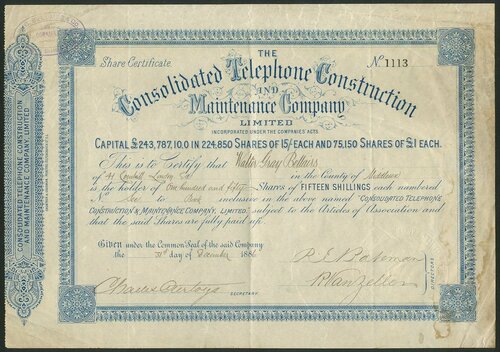 THE
Share Certificate.
No. 1113
Consolidated Telephone Construction
AND
Maintenance Company
LIMITED
INCORPORATED UNDER THE COMPANIES ACTS
CAPITAL £243,787.10.0 IN 224,850 SHARES OF 15/- EACH AND 75,150 SHARES OF £1 EACH.
This is to Certify that Walter Gray
of 41 Cornhill London in the County of Middlesex
is the holder of One hundred and fifty Shares of FIFTEEN SHILLINGS each numbered
No See to Back inclusive in the above named "CONSOLIDATED TELEPHONE
CONSTRUCTION & MAINTENANCE COMPANY, LIMITED" subject to the Articles of Association and
that the said Shares are fully paid up.
Given under the Common Seal of the said Company
the 31st day of December 1886
SECRETARY.
DIRECTORS
CONSOLIDATED TELEPHONE CONSTRUCTION
AND MAINTENANCE COMPANY LIMITED